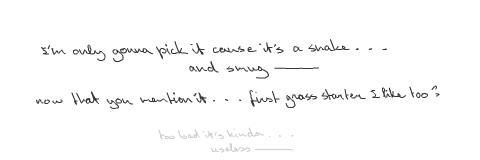 I'm only gonna pick it cause it's a snake . . .
and smug ——
now that you mention it . . . first grass starter I like too?
too bad it's kinda . . .
useless ——